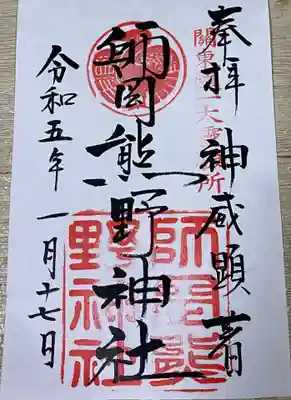 奉拝 神威顕著
關東随一大霊所
師岡熊野神社
令和五年 一月十七日
師岡熊
野神社